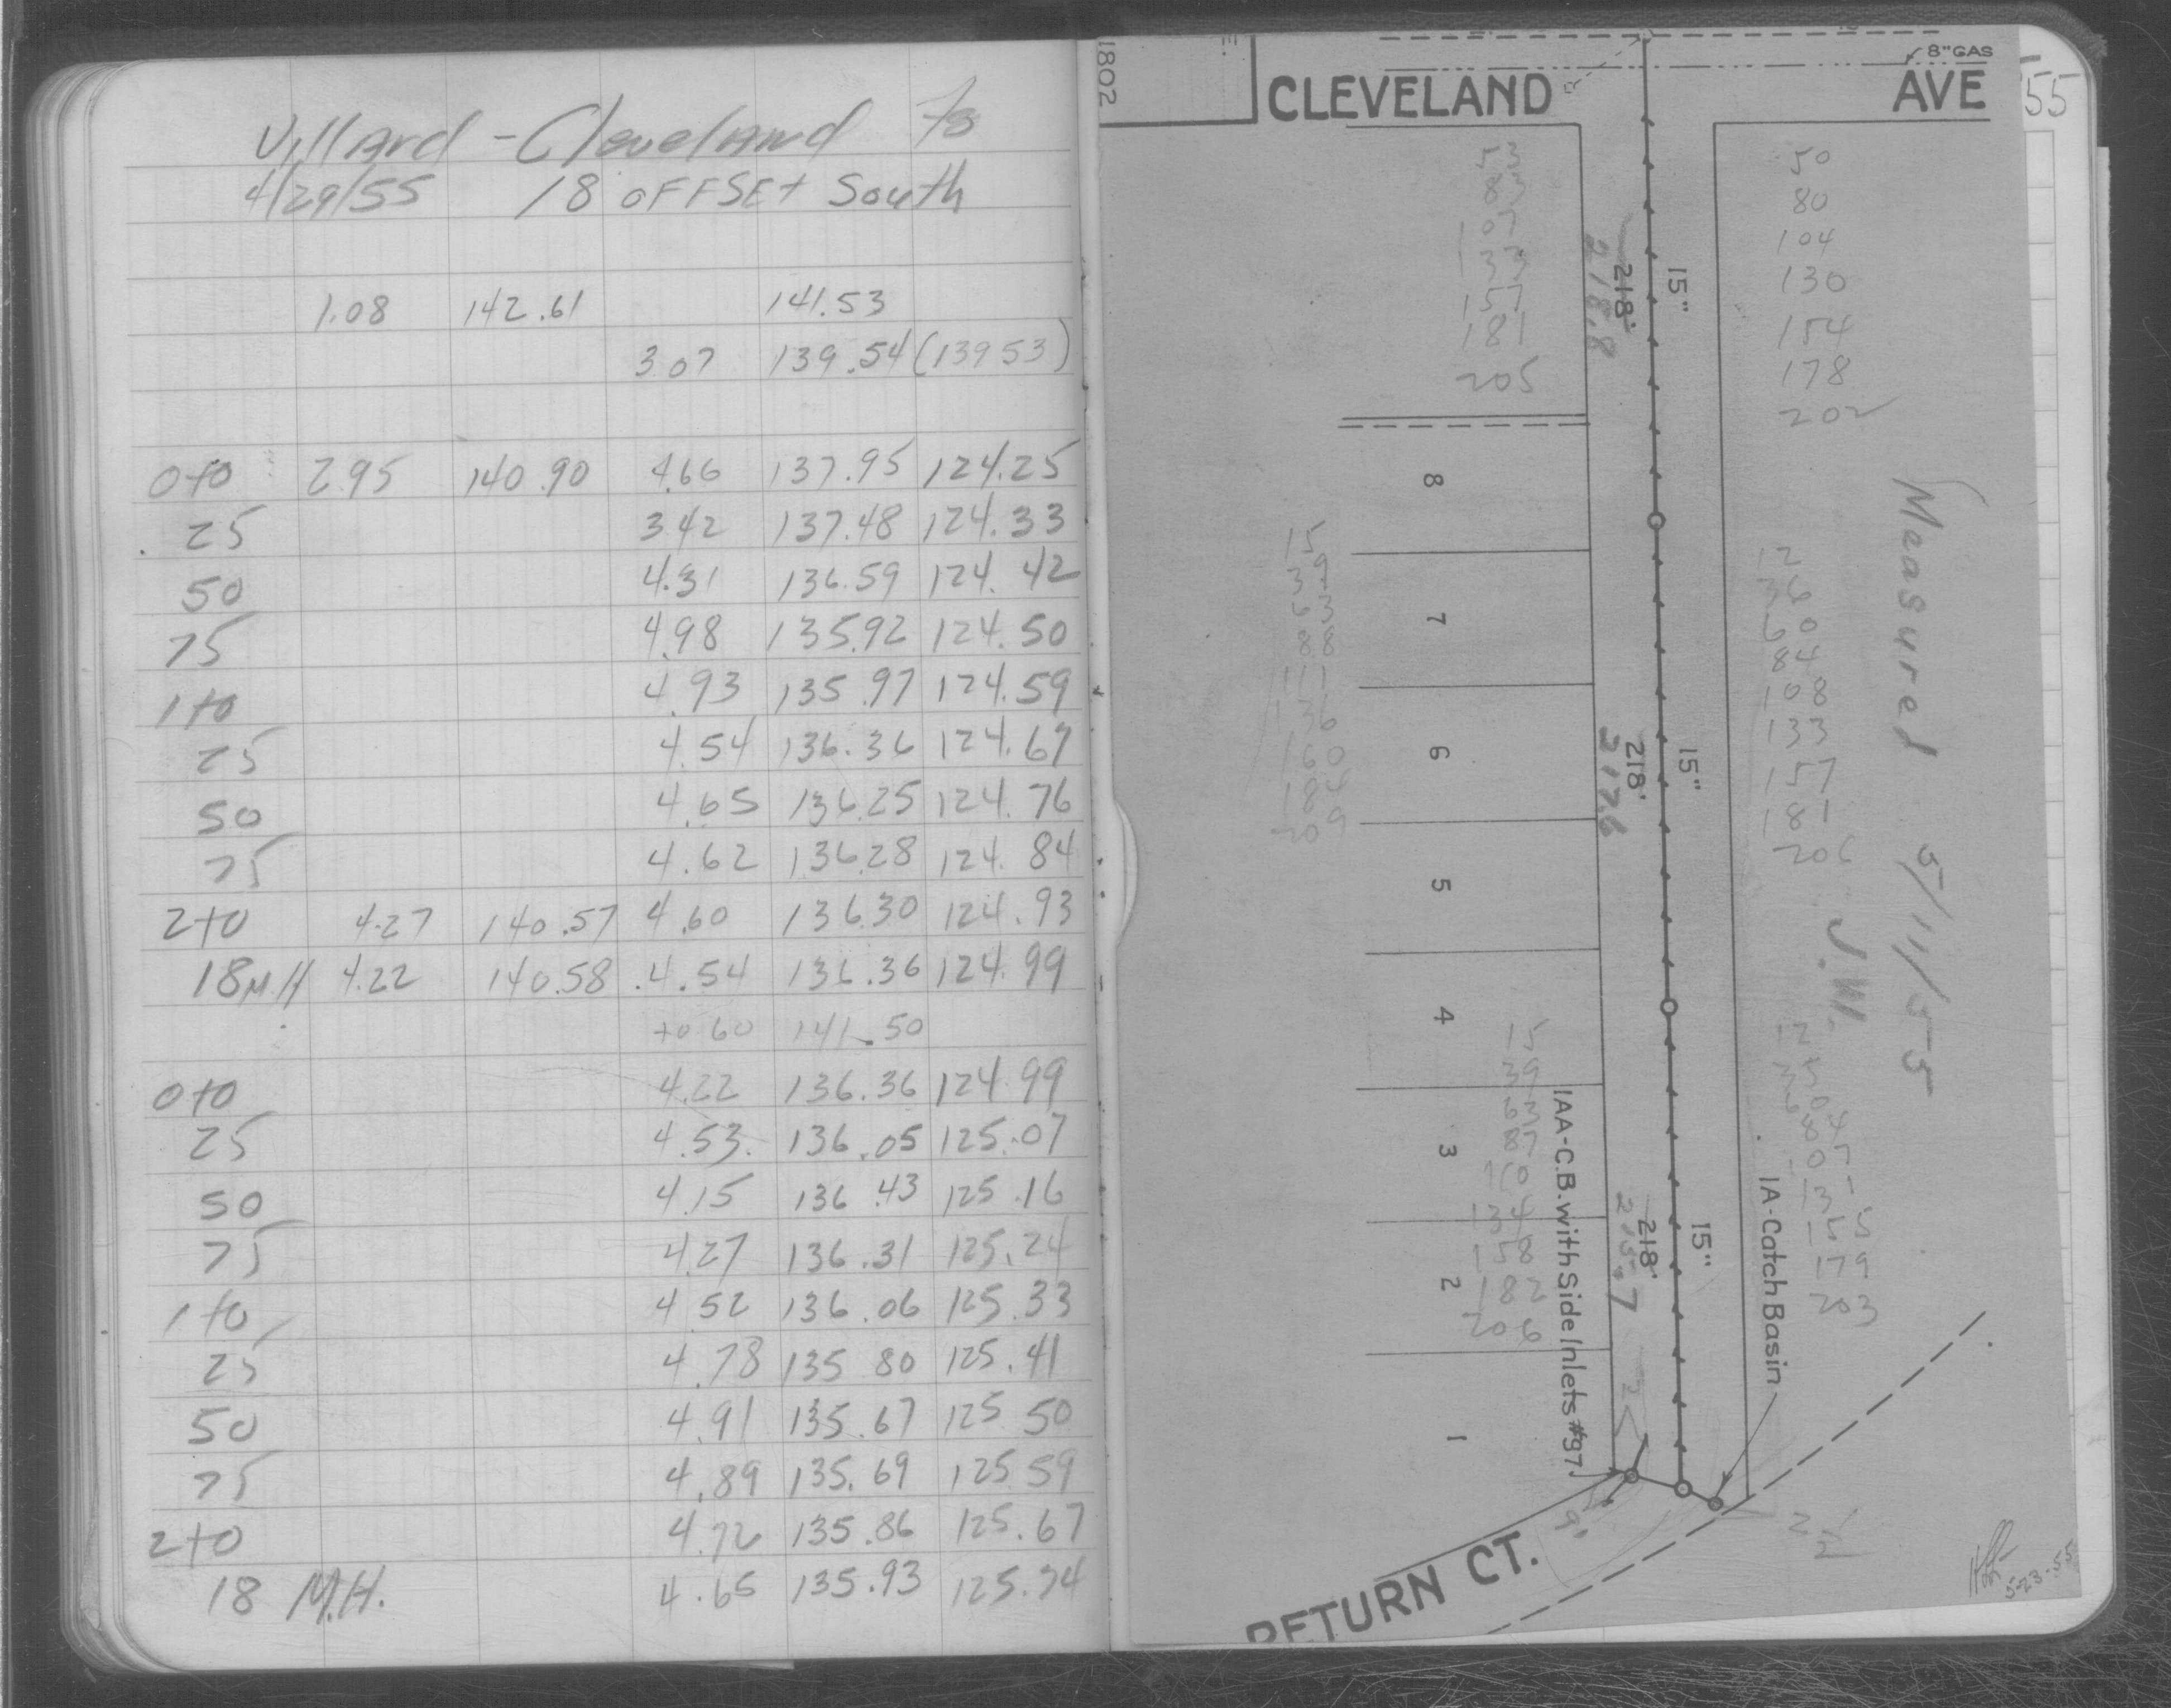 Villard - Cleveland
4/29/55 18 OFFSET South
1.08 142.61 141.53
3.07 139.54 (139.53)
0+0 2.95 140.90 4.66 137.95 124.25
25 3.42 137.48 124.33
50 4.31 136.59 124.42
75 4.98 135.92 124.50
1+0 4.93 135.97 124.59
25 4.54 136.36 124.67
50 4.65 136.25 124.76
75 4.62 136.28 124.84
2+0 4.27 140.57 4.60 136.30 124.93
18 M.H 4.22 140.58 4.54 136.36 124.99
+0.60 141.50
0+0 4.22 136.36 124.99
25 4.53 136.05 125.07
50 4.15 136.43 125.16
75 4.27 136.31 125.24
1+0 4.52 136.06 125.33
25 4.78 135.80 125.41
50 4.91 135.67 125.50
75 4.89 135.69 125.59
2+0 4.72 135.86 125.67
18 M.H. 4.65 135.93 125.74
1802
8" GAS
CLEVELAND AVE
55
50
80
104
130
154
178
202
181
205
218'
218.8
15"
8
7
6
5
4
3
2
1
218'
217.6
15"
108
133
157
181
206
Measured 5/11/55
J.W.
218'
215.7
15"
134
158
182
206
179
203
1AA-C.B. with Side Inlets #97
1A-Catch Basin
9'
RETURN CT.
5-23-55